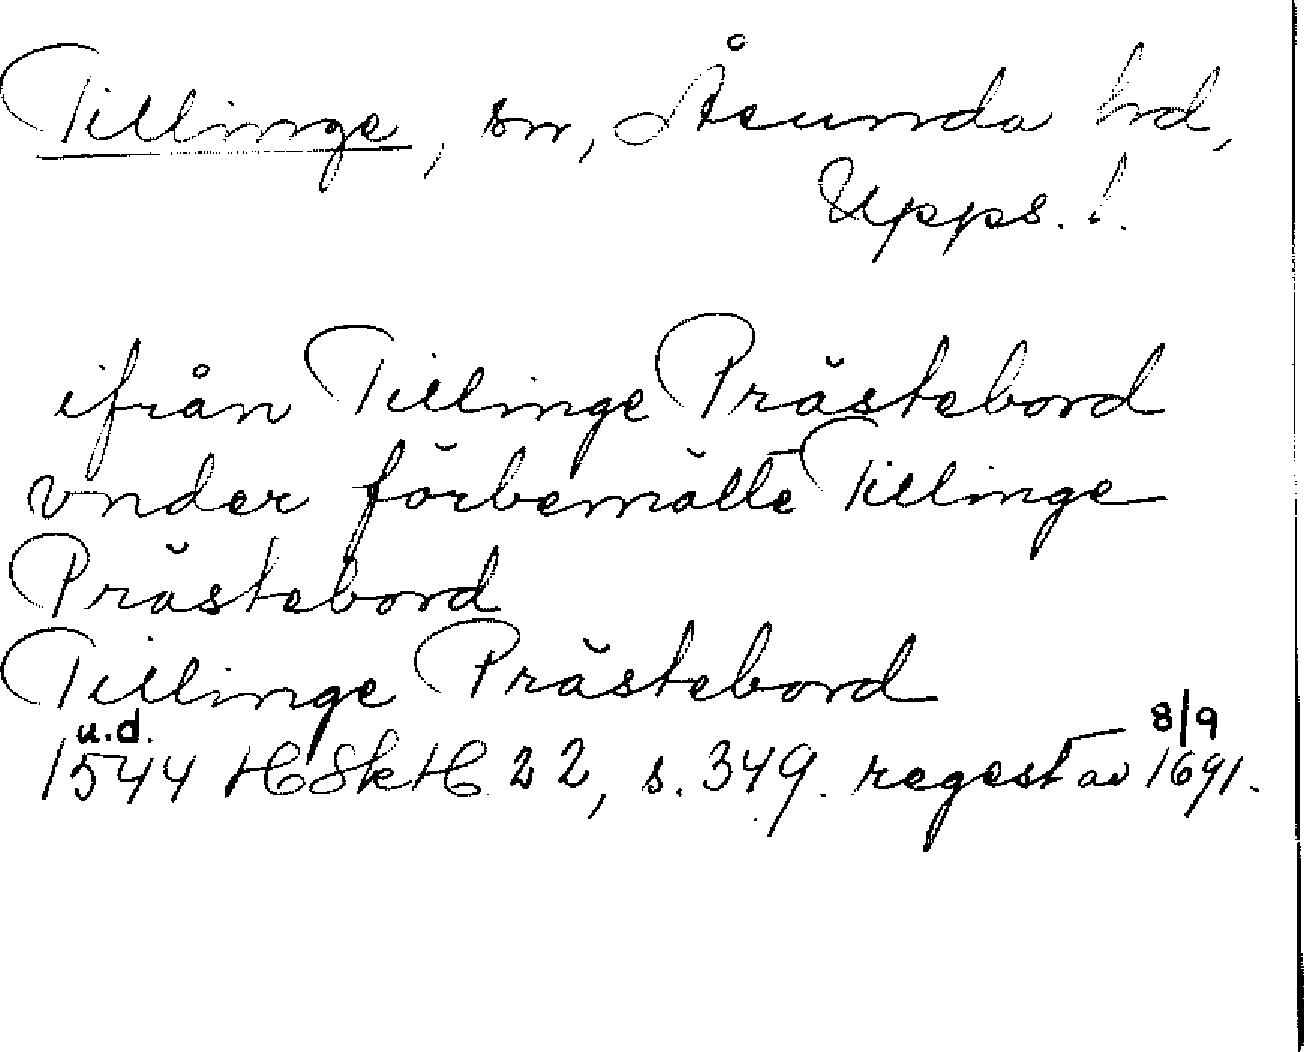 Tillinge, sn, Åsunda hd,
Upps. l.
ifrån Tillinge Prästebord
vnder förbemälte Tillinge
Prästebord
Tillinge Prästebord
u.d. 8/9
1544 HSkH 22, s. 349. regest av 1691.